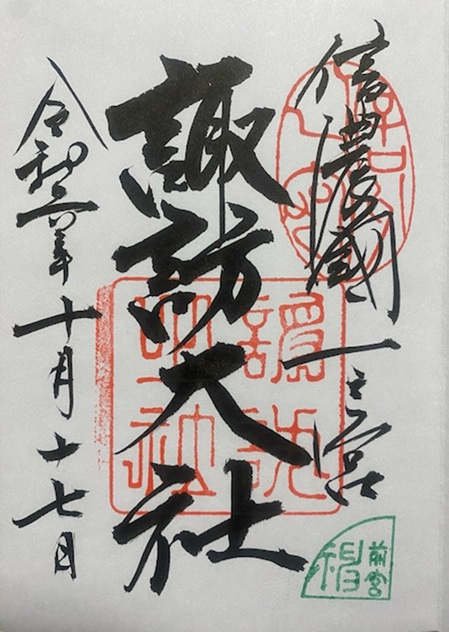 信濃國一之宮
諏訪大社
令和六年十月十七日
諏訪大社
前宮